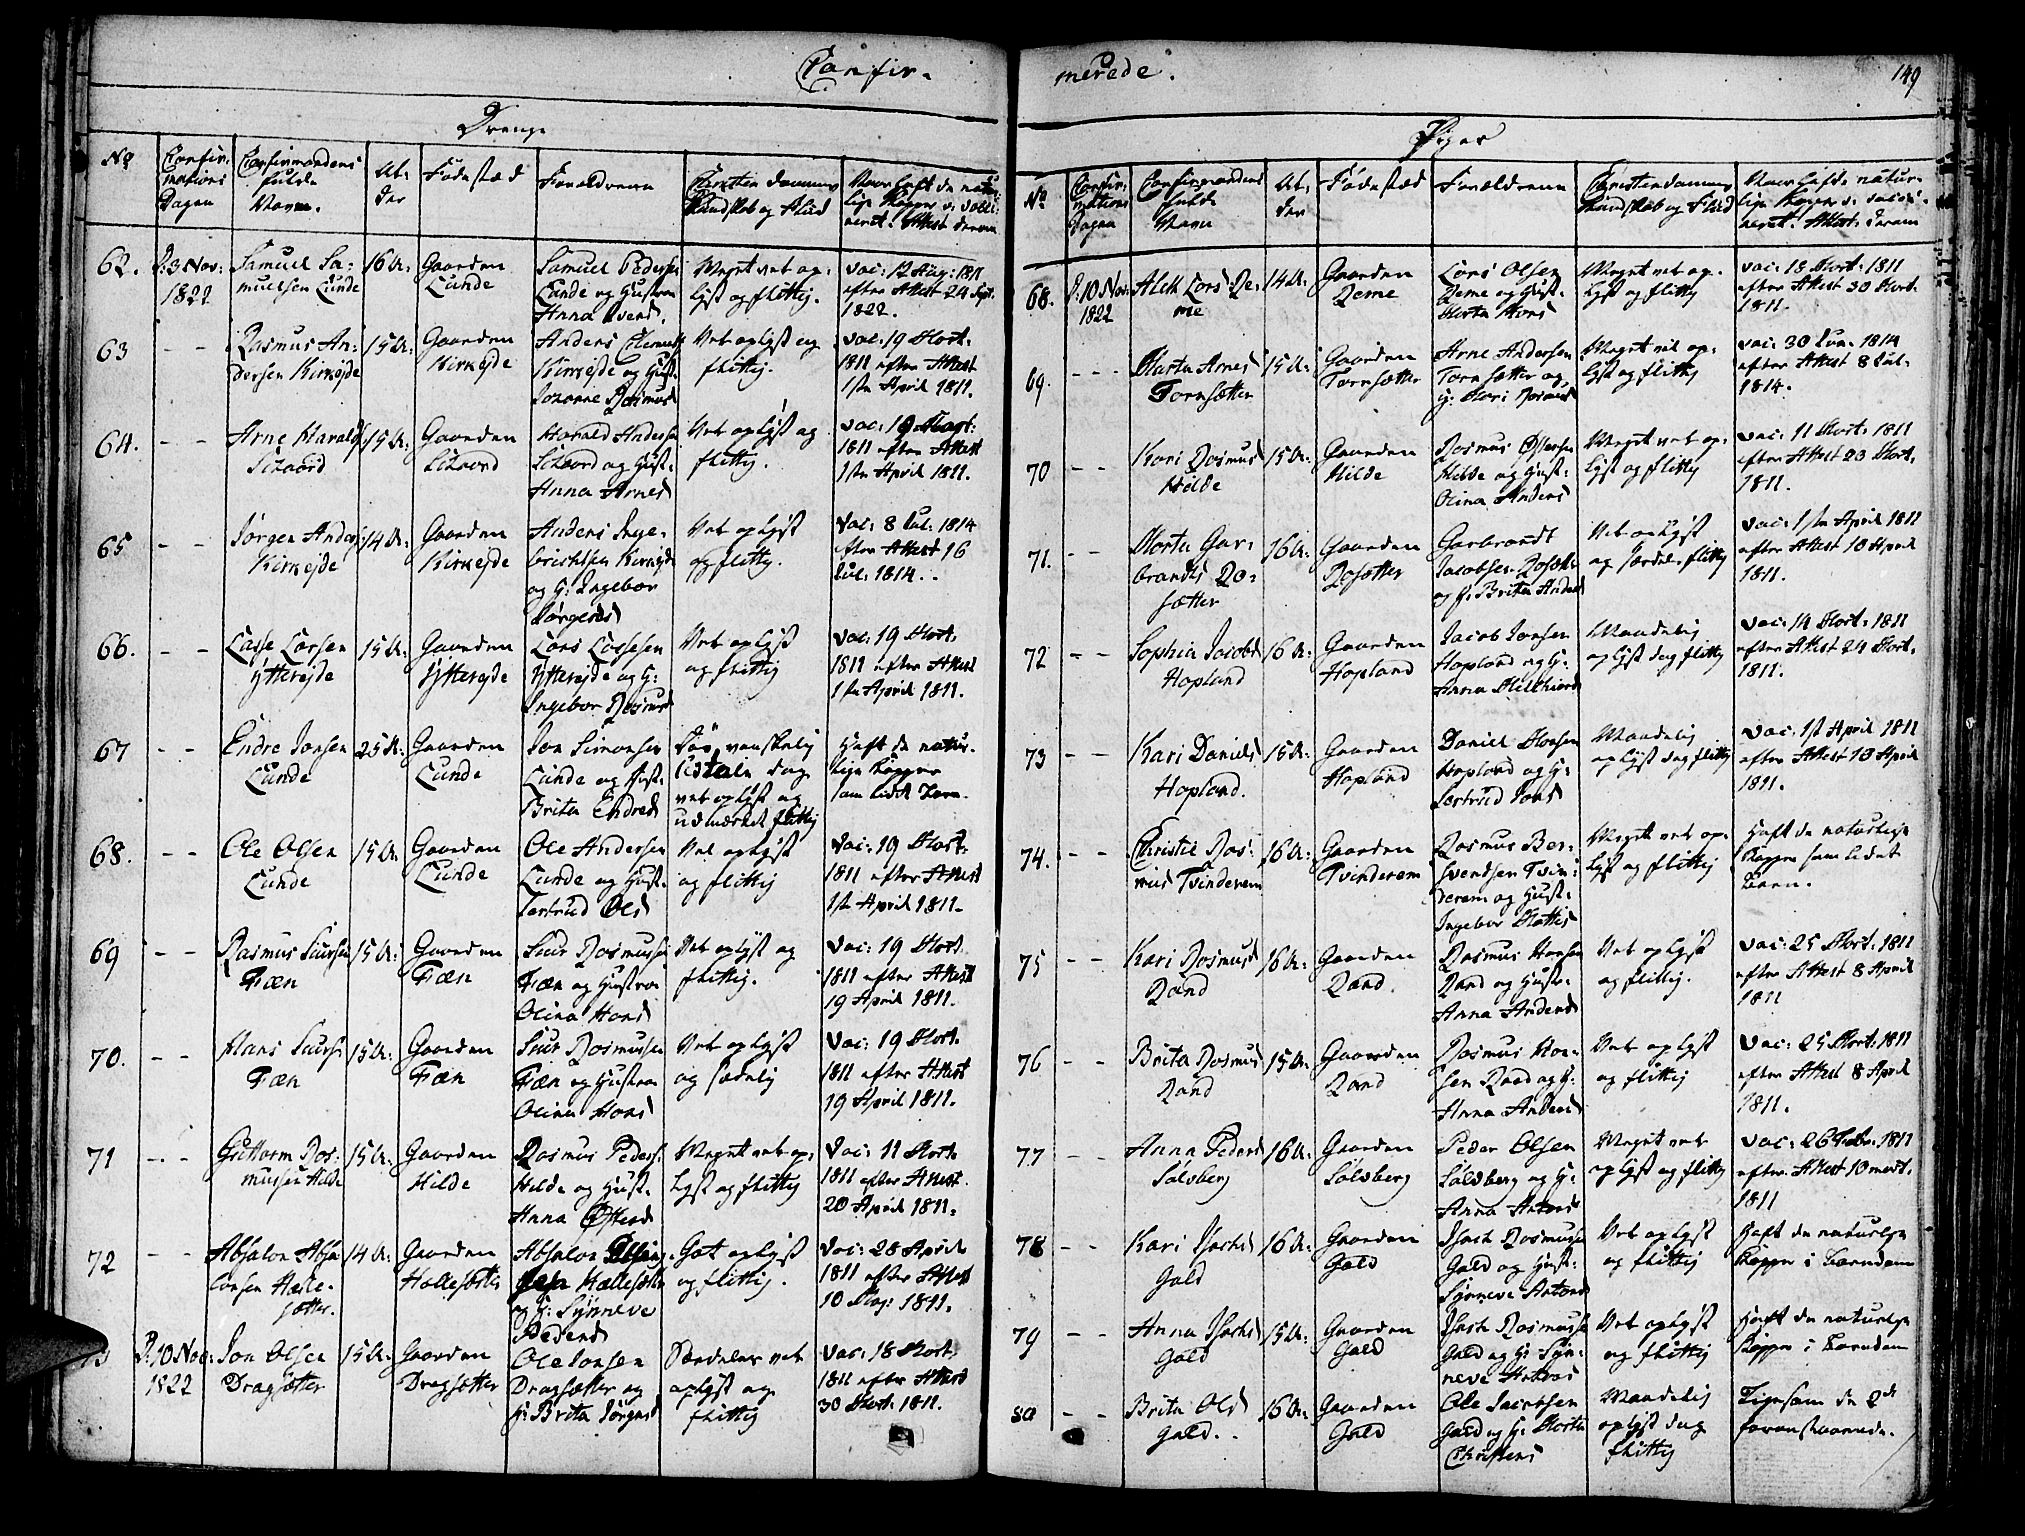 Confir-
Drenge
No
Confir-
mations
Dagen
Confirmandens
fulde
Navn.
Al-
der
Fødestæd
Forældrene
Christendomms
Kundskab og Flid
62.
D: 3 Nov:
1822
Samuel Sa-
muelsen Lunde
16 A:
Gaarden
Lunde
Samuel Pedersen
Lunde og Hustrue
Anna
Meget vel op-
lyst og flittig.
vac: 12 Aug: 1811
efter Attest 24 Sept.
1822.
63
- -
Rasmus An-
dersen Kirkejde
15 A:
Gaarden
Kirkejde
Anders
Kirkejde og Hust.
Rasmusd
Vel oplyst og
flittig.
vac: 19 Mart.
1811 efter Attest
1ste April 1811.
64.
- -
Arne Haralds.
15 A:
Gaarden
Harald Andersen
og Hust.
Anna Arnesd
Vel oplyst og
flittig.
vac: 19 Mart:
1811 efter Attest
1ste April 1811.
65
- -
Jørgen Anders.
Kirkejde
14 A:
Gaarden
Kirkejde
Anders Inge-
brichtsen Kirkejde
og H: Ingebor
Jørgensd
Vel oplyst
og flittig.
vac: 8 Jul: 1814
efter Attest 16
Jul: 1814.
66.
- -
Lasse Larsen
Ytterejde
15 A:
Gaarden
Ytterejde
Lars Lassesen
Ytterejde og H:
Ingebor Rasmusd
Vel oplyst
og flittig
vac: 19 Mart.
1811 efter Attest
1ste April 1811.
67
- -
Endre Jonsen
Lunde
25 A:
Gaarden
Lunde
Jon Simonsen
Lunde og Hust.
Brita Endresd
vanskelig
dog
vel oplyst og
udmærket flittig
Haft de natur-
lige Kopper
som lidet Barn.
68.
- -
Ole Olsen
Lunde
15 A:
Gaarden
Lunde
Ole Andersen
Lunde og Hust.
Gertrud Olsd
Vel oplyst
og flittig
vac: 19 Mart.
1811 efter Attest
1ste April 1811.
69
- -
Rasmus Siursen
Fæn
15 A:
Gaarden
Fæn
Siur Rasmussen
Fæn og Hustrue
Olina Hansd
Vel oplyst og
flittig.
vac: 19 Mart.
1811 efter Attest
19 April 1811.
70.
- -
Hans Siurs.
Fæn
15 A:
Gaarden
Fæn
Siur Rasmussen
Fæn og Hustrue
Olina Hansd
Vel oplyst
og sædelig
vac: 19 Mart.
1811 efter Attest
19 April 1811.
71
- -
Guttorm Ras-
mussen Hilde
15 A:
Gaarden
Hilde
Rasmus Peders.
Hilde og Hust.
Anna
Meget vel op-
lyst og flittig
vac: 11 Mart.
1811 efter Attest
20 April 1811.
72
- -
Absalon Absa-
lonsen Hælle-
sætter.
14 A:
Gaarden
Hællesætter
Absalon
Hællesætter
og H: Synneve
Pedersd
Got oplyst
og flittig.
vac: 28 April
1811 efter Attest
10 Maj: 1811.
73
D: 10 Nov:
1822
Jon Olsen
Dragsætter
15 A:
Gaarden
Dragsætter
Ole Jonsen
Dragsætter og
H: Brita Jørgensd
Særdeles vel
oplyst og
flittig
vac: 18 Mart.
1811 efter Attest
30 Mart. 1811.
merede.
149
Piger
No
Confir-
mations
Dagen
Confirmandens
fulde
Navn
Al-
der
Fødestæd
Forældrene
Christendomms
Kundskab og Flid
68.
D: 10 Nov:
1822
Alette Larsd: Re-
me
14 A:
Gaarden
Reme
Lars Olsen
Reme og Hust.
Marta Monsd
Meget vel op-
lyst og flittig
vac: 18 Mart: 1811
efter Attest 30 Mart.
1811.
69.
- - -
Marta Arnesd
Tornsætter
15 A:
Gaarden
Tornsætter
Arne Andersen
Tornsætter og
H: Kari Rasmusd
Meget vel op-
lyst og flittig
vac: 30 Jun. 1814
efter Attest 8 Jul.
1814.
70
- -
Kari Rasmusd
Hilde
15 A:
Gaarden
Hilde
Rasmus
Hilde og Hust.
Olina Andersd
Meget vel op-
lyst og flittig
vac: 11 Mart: 1811
efter Attest 20 Mart.
1811.
71.
- -
Marta Gar-
brandsd Ro-
sætter
16 A:
Gaarden
Rosætter
Garbrandt
Jacobsen Rosætter
og H: Brita Andersd
Vel oplyst
og særdeles flittig
vac: 1ste April 1811
efter Attest 10 April
1811.
72
- -
Sophia Jacobsd
Hopland
16 A:
Gaarden
Hopland
Jacob Jonsen
Hopland og H:
Anna
Maadelig
oplyst dog flittig
vac: 14 Mart: 1811
efter Attest 24 Mart.
1811.
73
- -
Kari Danielsd
Hopland.
15 A:
Gaarden
Hopland
Daniel Monsen
Hopland og H:
Gertrud Jonsd
Maadelig
oplyst dog flittig
vac: 1st April 1811
efter Attest 10 April
1811.
74.
- -
Christie Ras-
musd Tvinderem
16 A:
Gaarden
Tvinderem
Rasmus Ber-
Tvin-
derem og Hust.
Ingebor
Meget vel op-
lyst og flittig
Haft de naturlige
Kopper som lidet
Barn.
75
- -
Kari Rasmusd
Rand
16 A:
Gaarden
Rand.
Rasmus Hansen
Rand og Hust.
Anna Andersd
Vel oplyst
og flittig.
vac: 25 Mart. 1811
efter Attest 8 April
1811
76
- -
Brita Rasmusd
Rand
15 A:
Gaarden
Rand
Rasmus Han-
sen Rand og H:
Anna Andersd
Vel oplyst
og flittig
vac: 25 Mart. 1811
efter Attest 8 April
1811.
77
- -
Anna Pedersd
Sølvberg
16 A:
Gaarden
Sølvberg
Peder Olsen
Sølvberg og H:
Anna Antonsd
Meget vel
oplyst og flittig
vac: 26 Febr. 1811
efter Attest 10 mart.
1811
78
- -
Kari Isachsd
Gald
16 A:
Gaarden
Gald
Isach Rasmuss.
Gald og Hust.
Synneve Antonsd
Vel oplyst
og flittig
Haft de naturlige
Kopper i Barndom
79
- -
Anna Isachsd
Gald
15 A:
Gaarden
Gald
Isach Rasmusse
Gald og H: Syn-
neve Antonsd
Vel oplyst
og flittig
Haft de naturlige
Kopper i Barndom
80
- -
Brita Olsd
Gald.
16 A:
Gaarden
Gald
Ole Jacobsen
Gald og H: Marta
Christensd
Maadelig
oplyst dog
flittig
Ligesom de 2de
foranstaaende.